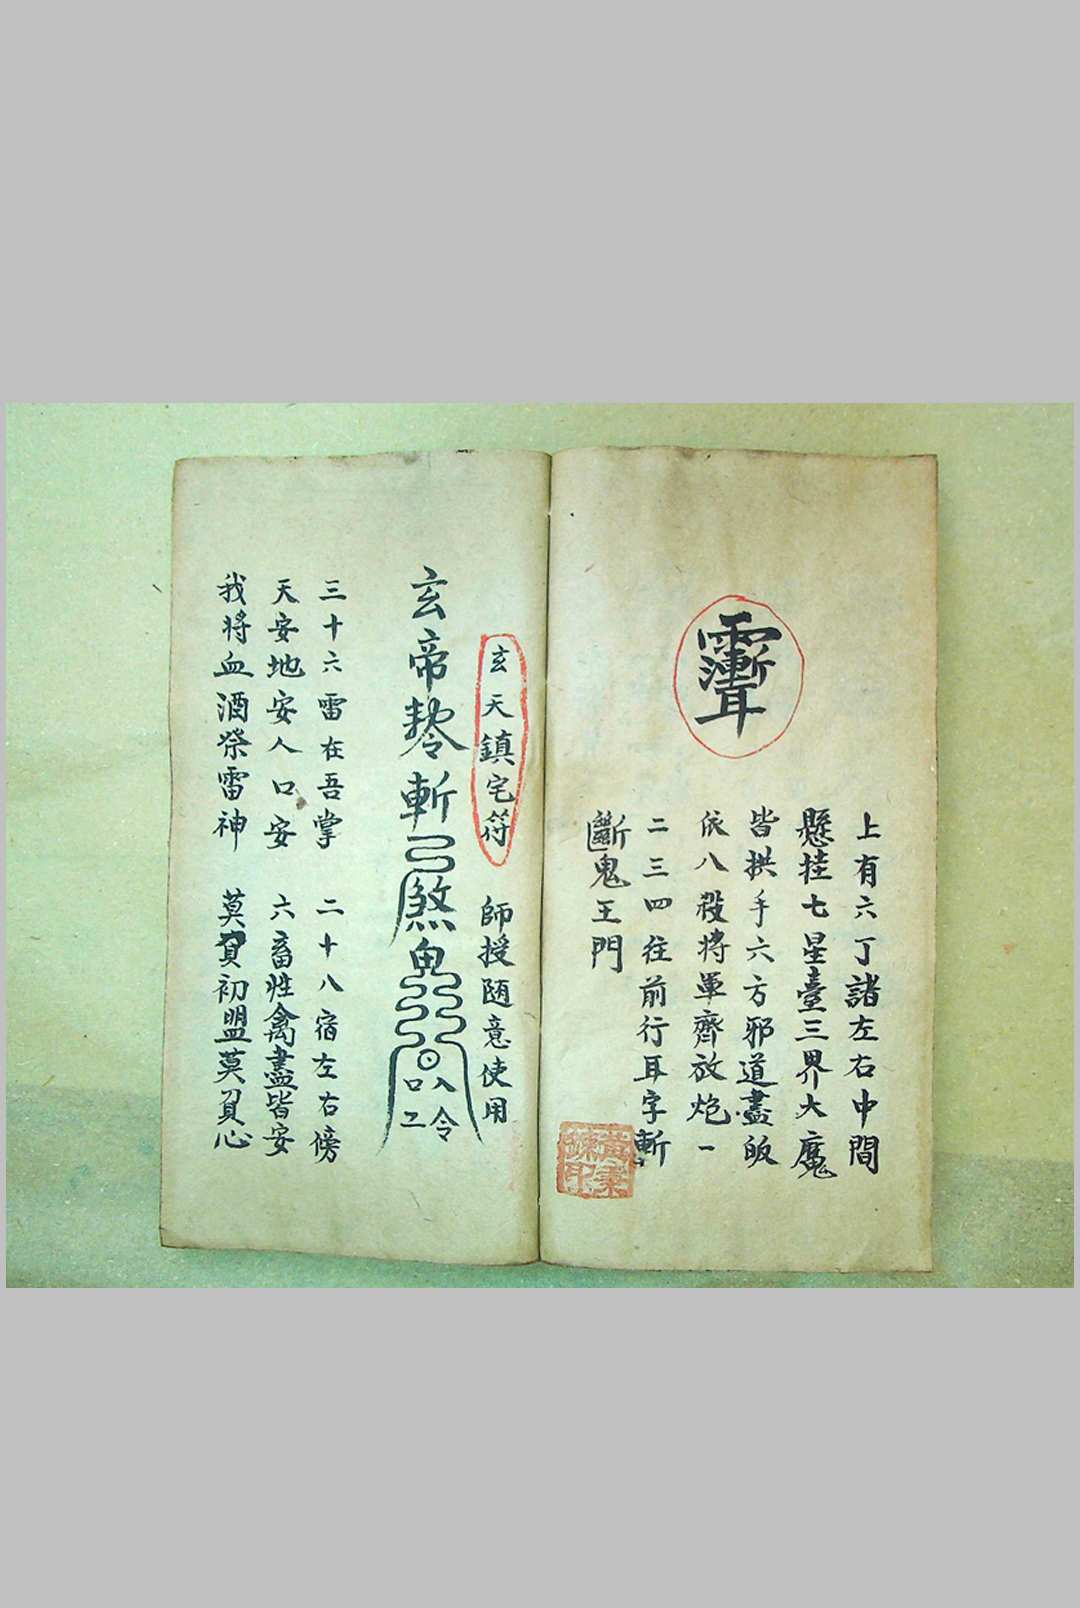 上有六丁諸左右中間
懸挂七星臺三界大魔
皆拱手六方邪道盡皈
依八殺將軍齊放炮一
二三四往前行耳字斬
斷鬼王門
玄天鎮宅符
師授隨意使用
玄帝 斬煞鬼
口八
工令
三十六雷在吾掌 二十八宿左右傍
天安地安人口安 六畜牲禽盡皆安
我將血酒祭雷神 莫負初盟莫負心